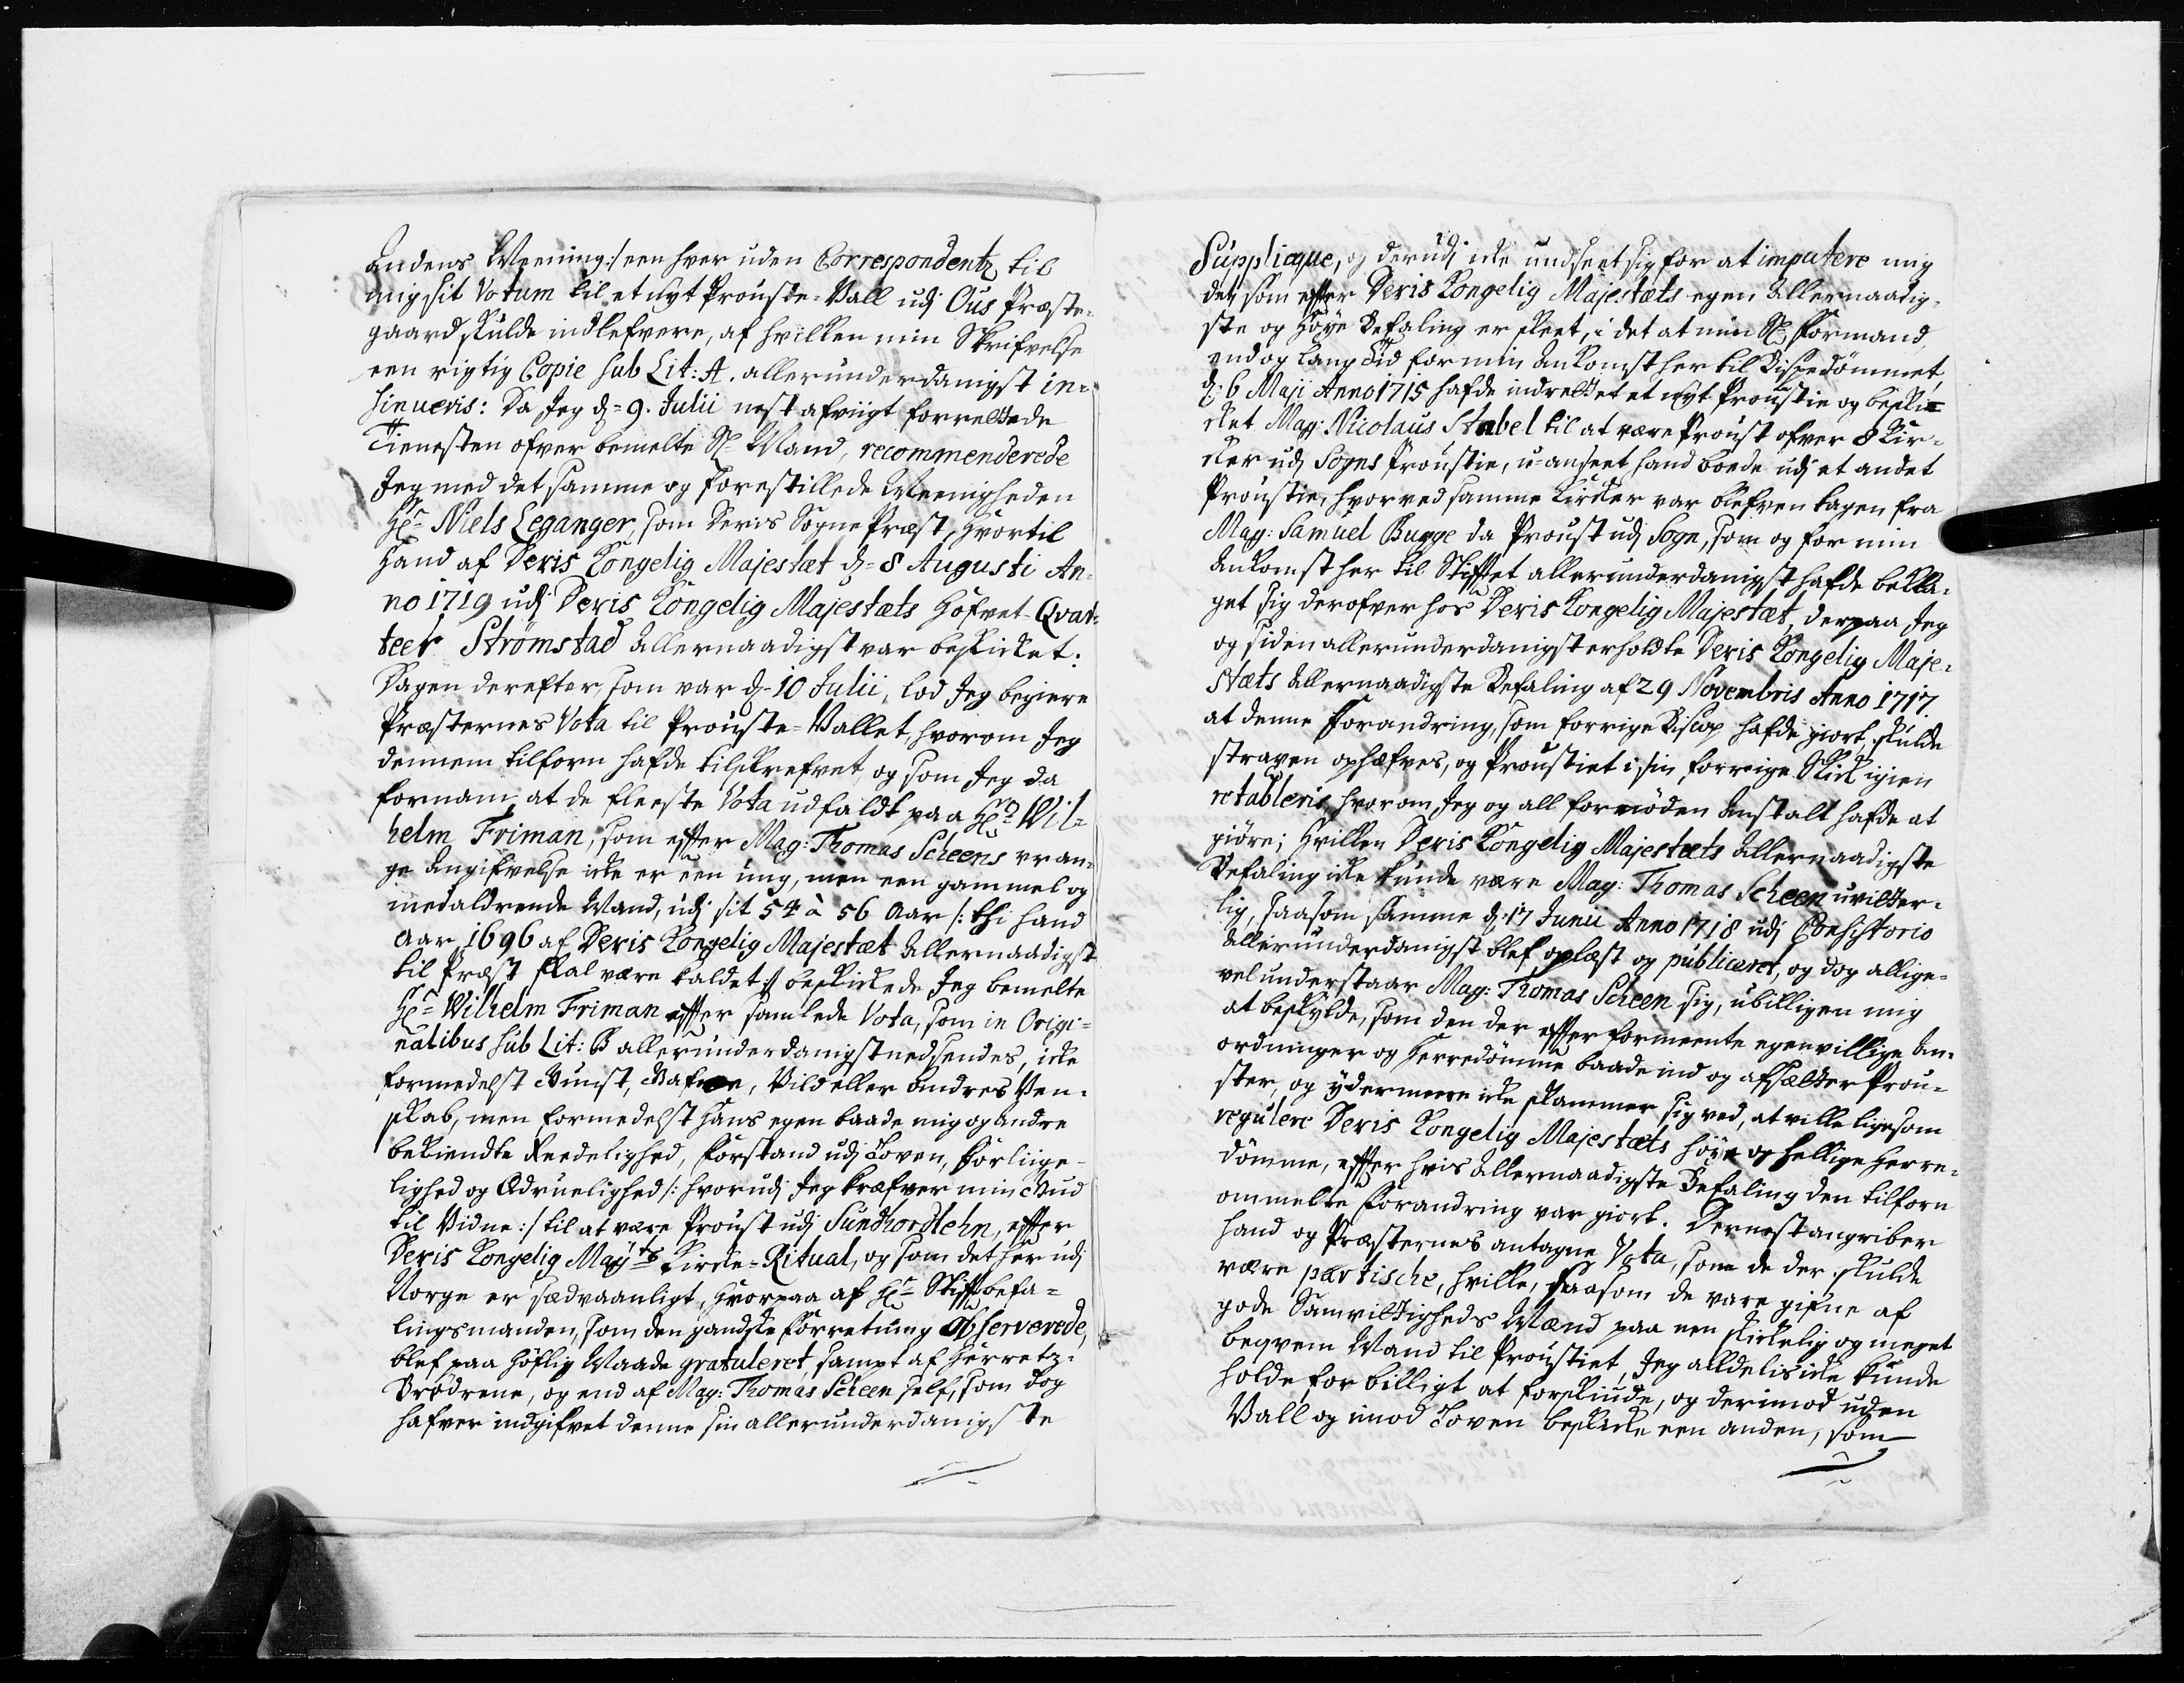 andens Meening:/ een hver uden Correspondentz til
mig sit Votum til et nyt Prouste-Vall udj Ous Præste-
gaard skulde indlefvere, af hvilken min Skrifvelse
een rigtig Copie sub Lit: A. allerunderdanigst in-
sinueris: Da Jeg d: 9. Julii nest afvigt forrettede
Tienesten ofver bemelte Sl: Mand, recommenderede
Jeg med det samme og forestillede Meenigheden
Hr: Niels Leganger, som deris Sogne Præst, hvortil
hand af Deris Kongelig Majestæt d: 8 Augusti An-
no 1719 udj Deris Kongelig Majestæts Hofvet-Qvar-
teer Strömstad allernaadigst var beskicket:
Dagen derefter, som var d: 10 Julii, lod Jeg begiere
Præsternes Vota til Prouste-Vallet, hvorom Jeg
dennem tilforn hafde tilskrefvet, og som Jeg da
fornam, at de fleeste Vota udfaldt paa Hr: Wil-
helm Friman, som effter Mag: Thomas Scheens vran-
ge Angifvelse icke er een ung, men een gammel og
medaldrende Mand, udj sit 54 à 56 Aar /: thi hand
Aar 1696 af Deris Kongelig Majestæt Allernaadigst
til Præst skal være kaldet :/ beskickede Jeg bemelte
Hr: Wilhelm Friman effter samlede Vota, som in Origi-
nalibus sub Lit: B allerunderdanigst nedsendes, icke
formedelst Gunst, Gafver, Vild eller andres Ven-
skab, men formedelst hans egen baade mig og andre
bekiendte Reedelighed, forstand udj Loven, Førlige-
lighed og Ædruelighed /: hvorudj Jeg kræfver min Gud
til Vidne :/ til at være Proust udj Sundhordlehn, effter
Deris Kongelig Mayts Kircke-Ritual, og som det her udj
Norge er sædvaanligt, hvorpaa af Hr: Stifftbefa-
lingsmanden, som den gandske forretning observerede,
blef paa höflig Maade gratuleret, sampt af Herretz-
Brödrene, og end af Mag: Thomas Scheen self, som dog
hafver indgifvet denne sin allerunderdanigste
Supplicqve, og derudj icke undseet sig for at imputere mig
det, som effter Deris Kongelig Majestæts egen Allernaadig-
ste og Höye Befaling er skeet, i det at min Sl: Formand
end og lang Tid for min Ankomst her til Bispedömmet,
d: 6 Maji Anno 1715 hafde indrettet et nyt Proustie og beski-
cket Mag: Nicolaus Stabel til at være Proust ofver 8 Kir-
cker udj Sogns Proustie, u-anseet hand boede udj et andet
Proustie, hvorved samme Kircker var blefven tagen fra
Mag: Samuel Bugge da Proust udj Sogn, som og for min
Ankomst her til Stifftet allerunderdanigst hafde bekla-
get sig derofver hos Deris Kongelig Majestæt, derpaa Jeg
og siden allerunderdanigst erholdte Deris Kongelig Maje-
stæts Allernaadigste Befaling af 29 Novembris Anno 1717.
at denne Forandring, som forrige Biscop hafde giort, skulde
straxen ophæfves, og Proustiet i sin forrige Skick igien
retableris, hvorom Jeg og all fornöden Anstalt hafde at
giöre; Hvilken Deris Kongelig Majestæts Allernaadigste
Befaling icke kunde være Mag: Thomas Scheen uvitter-
lig, saasom samme d: 17 Junii Anno 1718 udj Consistorio
Allerunderdanigst blef oplæst og publiceret, og dog allige-
vel understaar Mag: Thomas Scheen sig, ubilligen mig
at beskylde, som den der effter formeente egenvillige An-
ordninger og Herredömme baade ind og afsætter Prou-
ster, og ydermeere icke skammer sig ved, at ville ligesom
regulere Deris Kongelig Majestæts höye og hellige Herre-
dömme, effter hvis Allernaadigste Befaling den tilforn
ommelte Forandring var giort. Dernest angriber
hand og Præsternes antagne Vota, som de der skulde
være partische, hvilke, saasom de vare gifne af
gode Samvittigheds Mænd paa een skickelig og meget
beqvem Mand til Proustiet, Jeg alldelis icke kunde
holde for billigt at forskiude, og derimod uden
Vall og imod Loven beskicke een anden, som